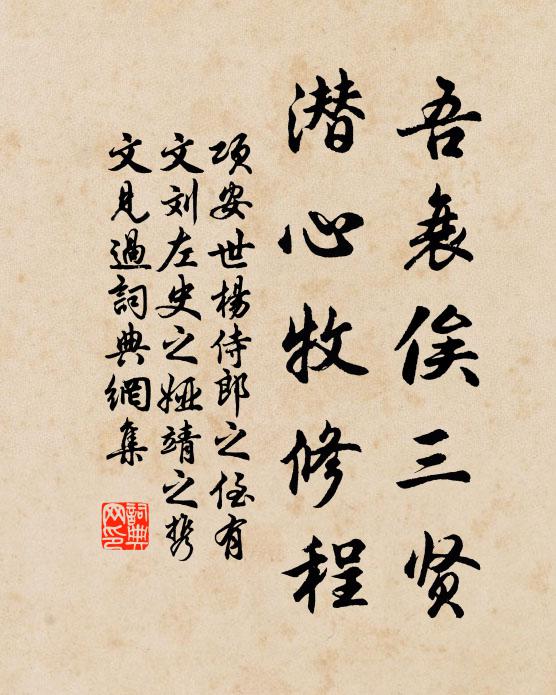 吾衰俟三贤
潜心牧修程
项安世杨侍郎之侄有
文刘左史之娅靖之携
文见过词典網集
詞典
网印